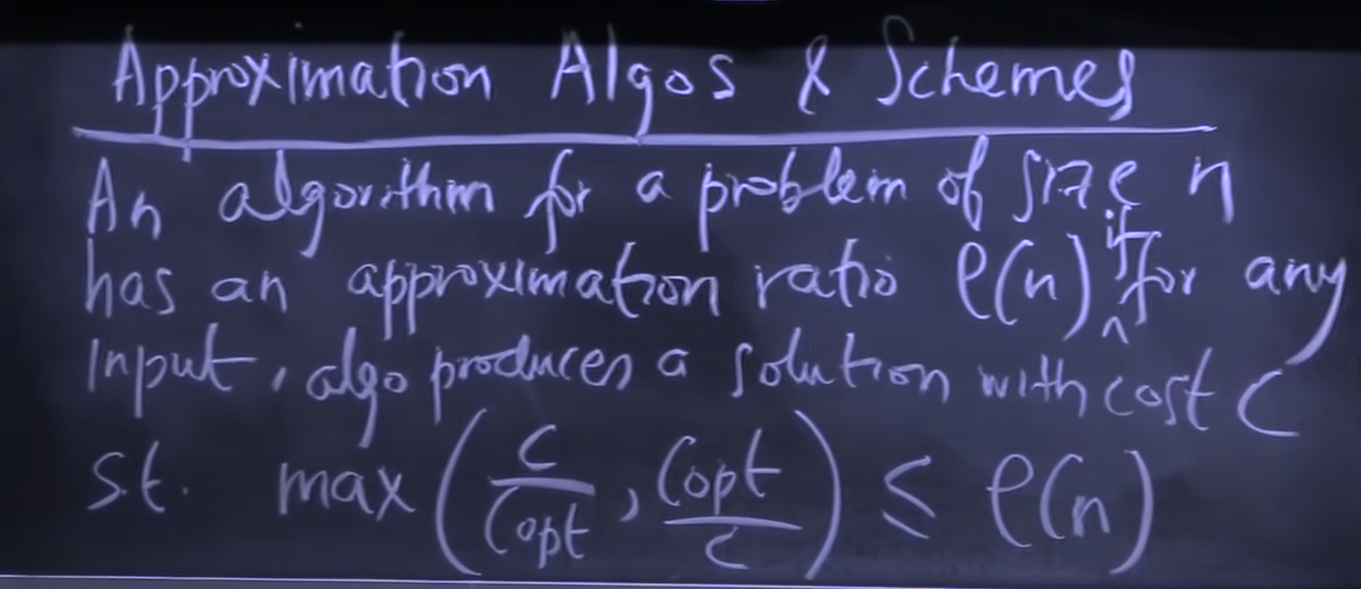 Approximation Algos & Schemes
An algorithm for a problem of size n
has an approximation ratio ρ(n) if for any
input, algo produces a solution with cost C
s.t. max(C/Copt, Copt/C) ≤ ρ(n)